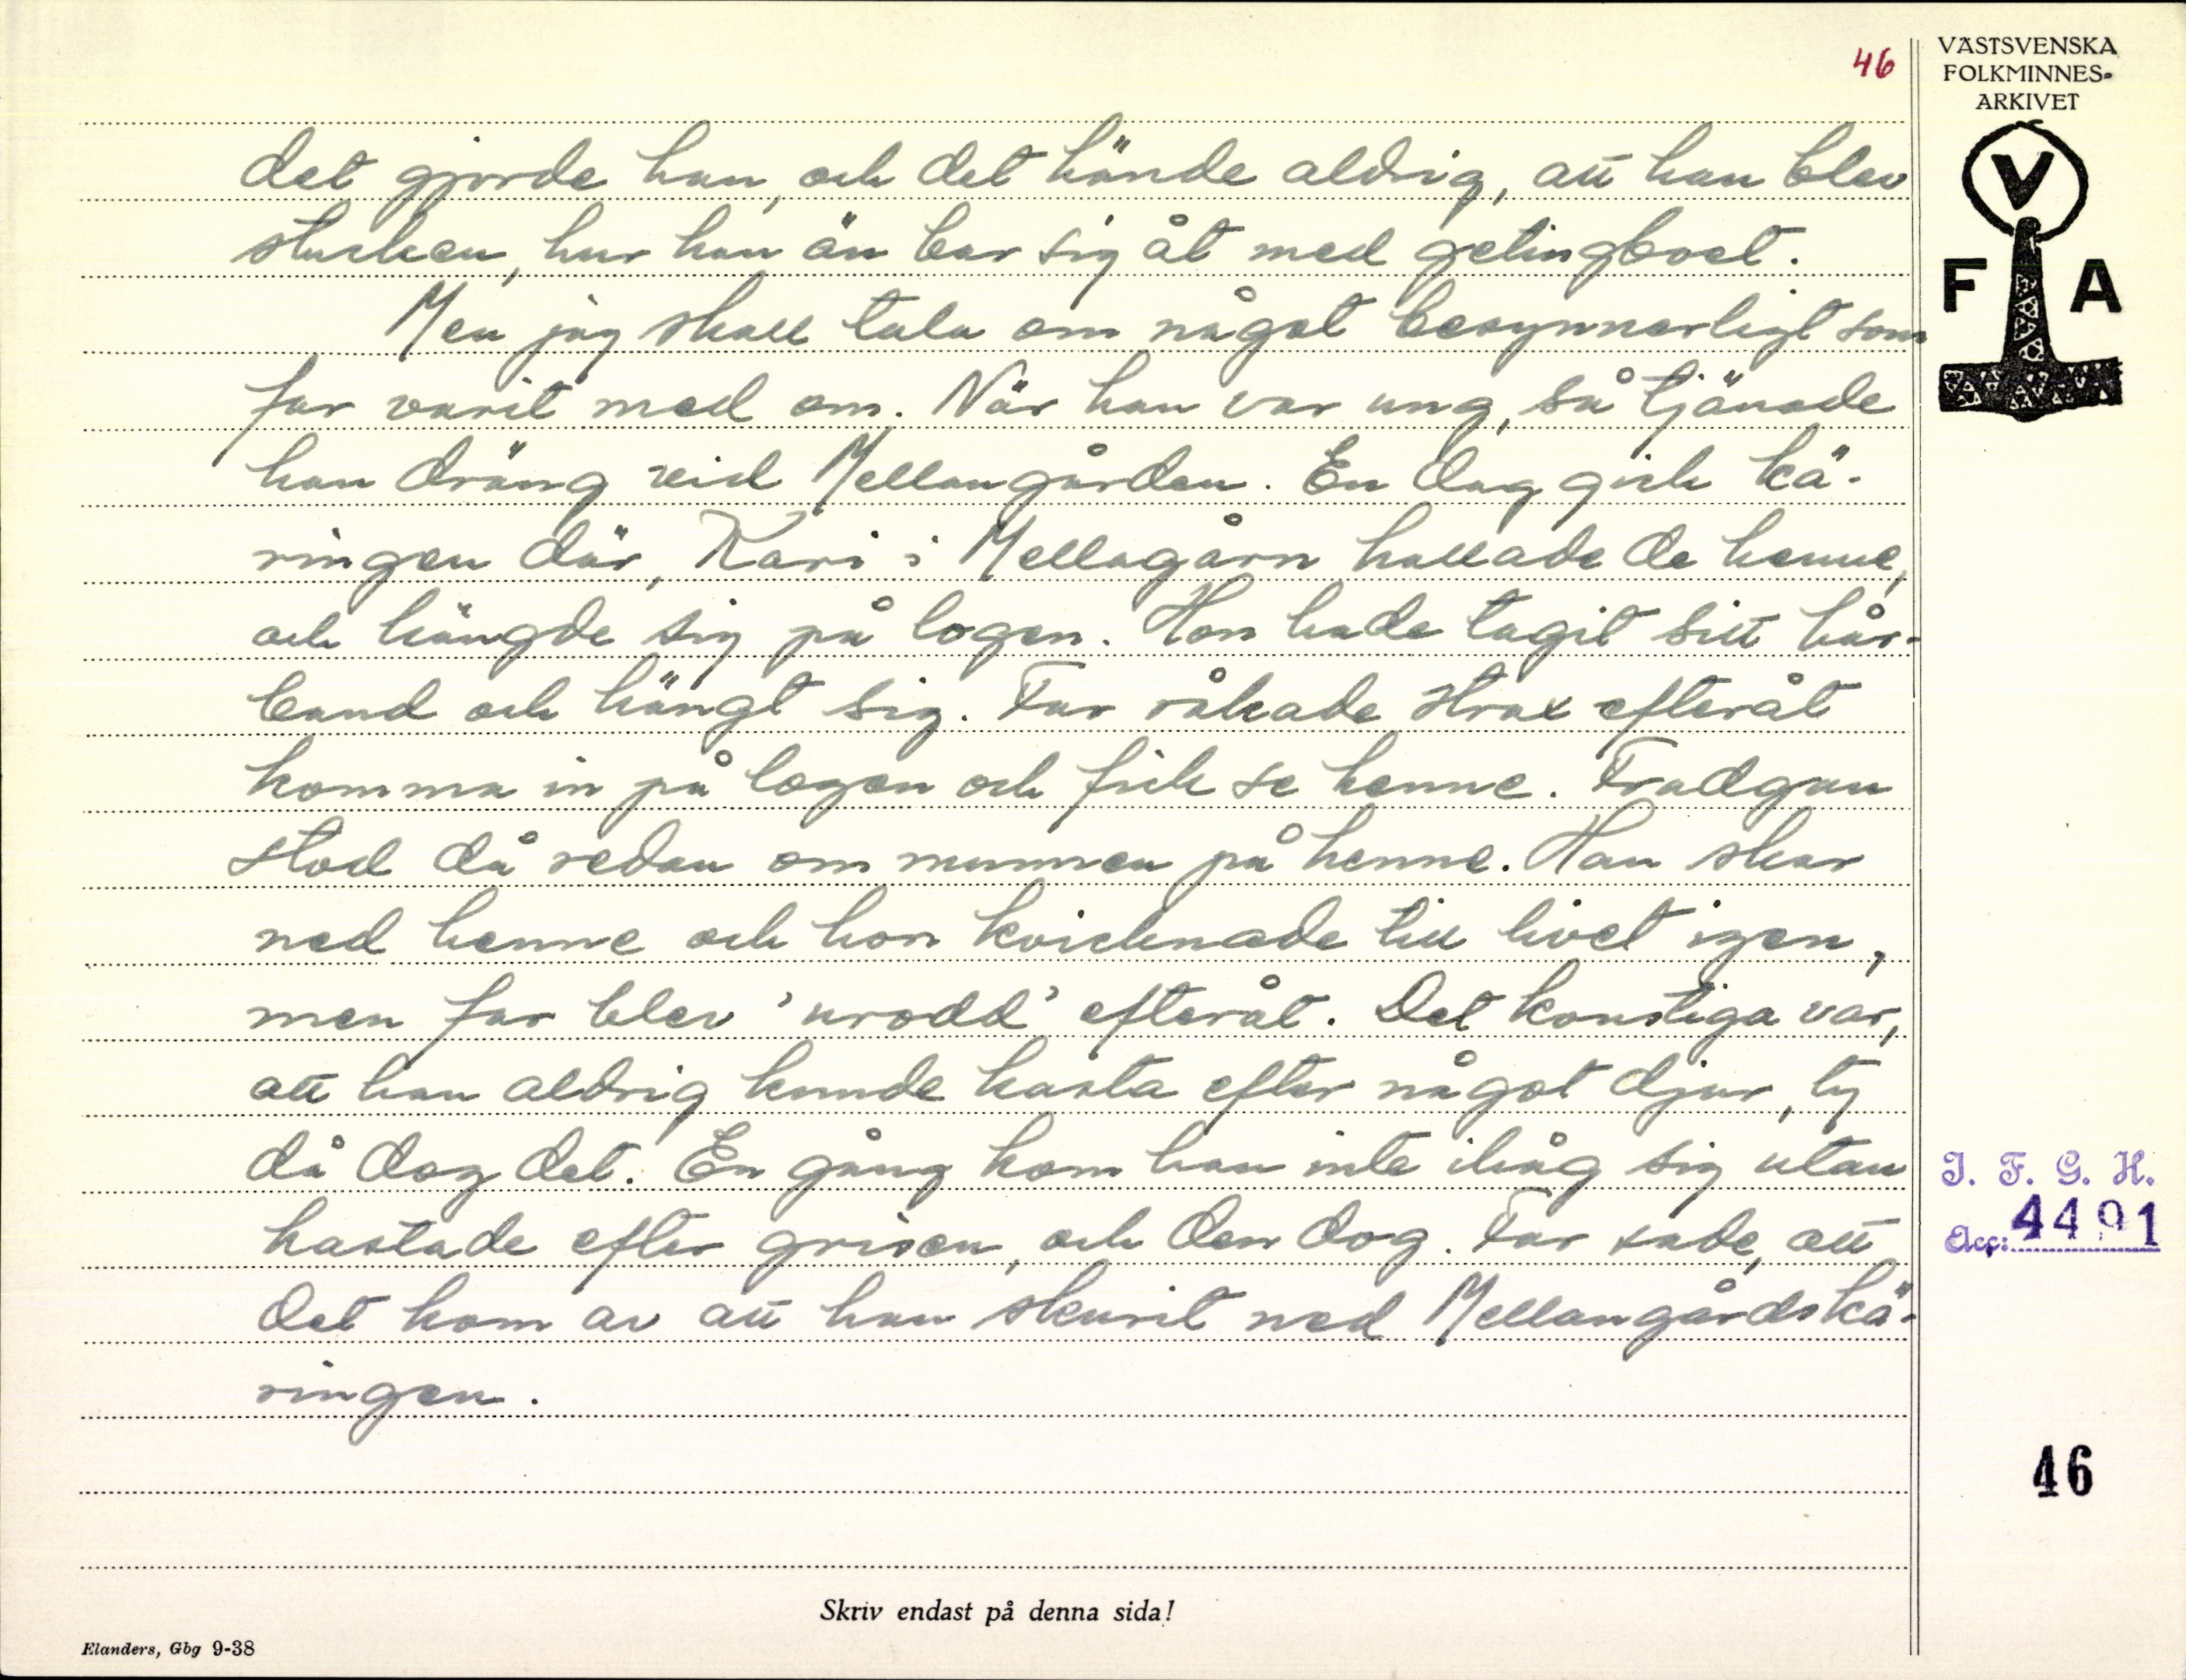 46
VÄSTSVENSKA
FOLKMINNES-
ARKIVET
V
F A
det gjorde han, och det hände aldrig, att han blev
stucken, hur han än bar sig åt med getingboet.
Men jag skall tala om något besynnerligt som
far varit med om. När han var ung, så tjänade
han dräng vid Mellangården. En dag gick kä-
ringen där, Kari i Mellagårn kallade de henne,
och hängde sig på logen. Hon hade tagit sitt hår-
band och hängt sig. Far råkade strax efteråt
komma in på logen och fick se henne. Fradgan
stod då redan om munnen på henne. Han skar
ned henne och hon kvicknade till livet igen,
men far blev 'urodd' efteråt. Det konstiga var,
att han aldrig kunde kasta efter något djur, ty
då dog det. En gång kom han inte ihåg sig utan
kastade efter grisen, och den dog. Far sade, att
det kom av att han skurit ned Mellangårdskä-
ringen.
I. F. G. H.
Acc: 4491
46
Skriv endast på denna sida!
Elanders, Gbg 9-38